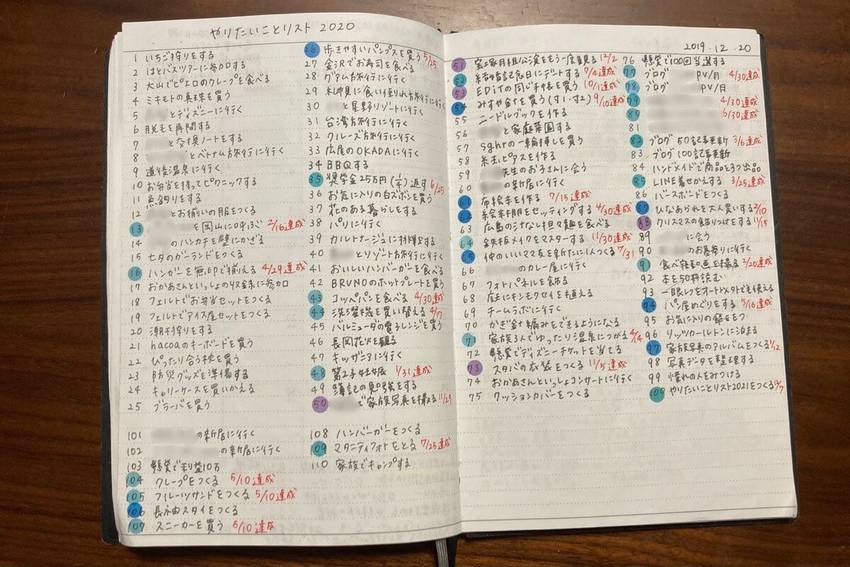 やりたいことリスト 2020
1 いちご狩りをする
2 はとバスツアーに参加する
3 大山でピエロのクレープを食べる
4 ミキモトの真珠を買う
5 とディズニーに行く
6 脱毛を再開する
7 と交換ノートをする
8 とベトナム旅行に行く
9 道後温泉に行く
10 お弁当を持ってピクニックする
11 魚釣りをする
12 とお揃いの服をつくる
13 を岡山に呼ぶ 2/16達成
14 のハンカチを壁にかざる
15 七夕のガーランドをつくる
16 ハンガーを無印で揃える 4/29達成
17 おかあさんといっしょの収録に参加
18 フェルトでお弁当セットをつくる
19 フェルトでアイス屋セットをつくる
20 潮干狩りをする
21 hacoaのキーボードを買う
22 ぴったり合う枕を買う
23 防災グッズを準備する
24 キャリーケースを買いかえる
25 ブラーバを買う
26 歩きやすいパンプスを買う 5/25
27 金沢でお寿司を食べる
28 グアム旅行に行く
29 木曽見に食い倒れ旅行に行く
30 と星野リゾートに行く
31 台湾旅行に行く
32 クルーズ旅行に行く
33 広尾のOKADAに行く
34 BBQする
35 奨学金25万円 返す 6/25
36 お気に入りの白ズボンを買う
37 花のある暮らしをする
38 パリに行く
39 カルトナージュに挑戦する
40 とリゾート旅行に行く
41 おいしいハンバーガーを食べる
42 BRUNOのホットプレートを買う
43 コッペパンを食べる 4/30達成
44 洗濯機を買い替える 4/7
45 バルミューダの電子レンジを買う
46 長岡花火を観る
47 キッザニアに行く
48 第2子妊娠 1/31達成
49 簿記の勉強をする
50 で家族写真を撮る 11/29
101 の新居に行く
102 の新居に行く
103 懸賞で利益10万
104 クレープをつくる 5/10達成
105 フルーツサンドをつくる 5/10達成
106 長本由スタイをつくる
107 スニーカーを買う 6/10達成
108 ハンバーガーをつくる
109 マタニティフォトをとる 7/25達成
110 家族でキャンプする
2019.12.20
51 宝塚月組公演をもう一度観る 12/2
52 結婚記念日にデートする 7/10達成
53 EDiTの同じ手帳を買う 10/1達成
54 みすず飴を買う 9/10達成
55 ニードルブックを作る
56 と家庭菜園する
57 sghrの一輪挿しを買う
58 糸玉ピアスを作る
59 先生のお子さんに会う
60 の新居に行く
61 布絵本を作る 7/15達成
62 絵本本棚をセッティングする 4/30達成
63 広島の汁なし担々麺を食べる
64 鉄板メイクをマスターする 11/30達成
65 仲のいいママ友を新たに1人つくる 7/31
66 のカレー屋に行く
67 フォトパネルを飾る
68 庭にキンモクセイを植える
69 チームラボに行く
70 かぎ針編みをできるようになる
71 家族3人でゆったり温泉につかる 4/4
72 懸賞でディズニーチケットを当てる
73 スタバの衣装をつくる 11/5達成
74 おかあさんといっしょコンサートに行く
75 クッションカバーをつくる
76 懸賞で100回当選する
77 ブログ PV/月 4/30達成
78 ブログ PV/月
79 4/30達成
80 6/30達成
81
82 ブログ 50記事更新 3/6達成
83 ブログ 100記事更新
84 ハンドメイドで商品を3つ出品
85 LINE着せかえする 3/25達成
86 バースボードをつくる
87 んなあられを大人買いする 2/10
88 クリスマスの飾りつけをする 11/14
89 に会う
90 のお墓参りに行く
91 食べ種動画を撮る 3/20達成
92 本を50冊読む
93 一眼レフをオート以外でも使える
94 パン屋めぐりをする 5/16達成
95 お気に入りの傘をもつ
96 リッツカールトンに泊まる
97 家族写真のアルバムをつくる 1/12
98 写真データを整理する
99 憧れの人をみつける
100 やりたいことリスト2021をつくる